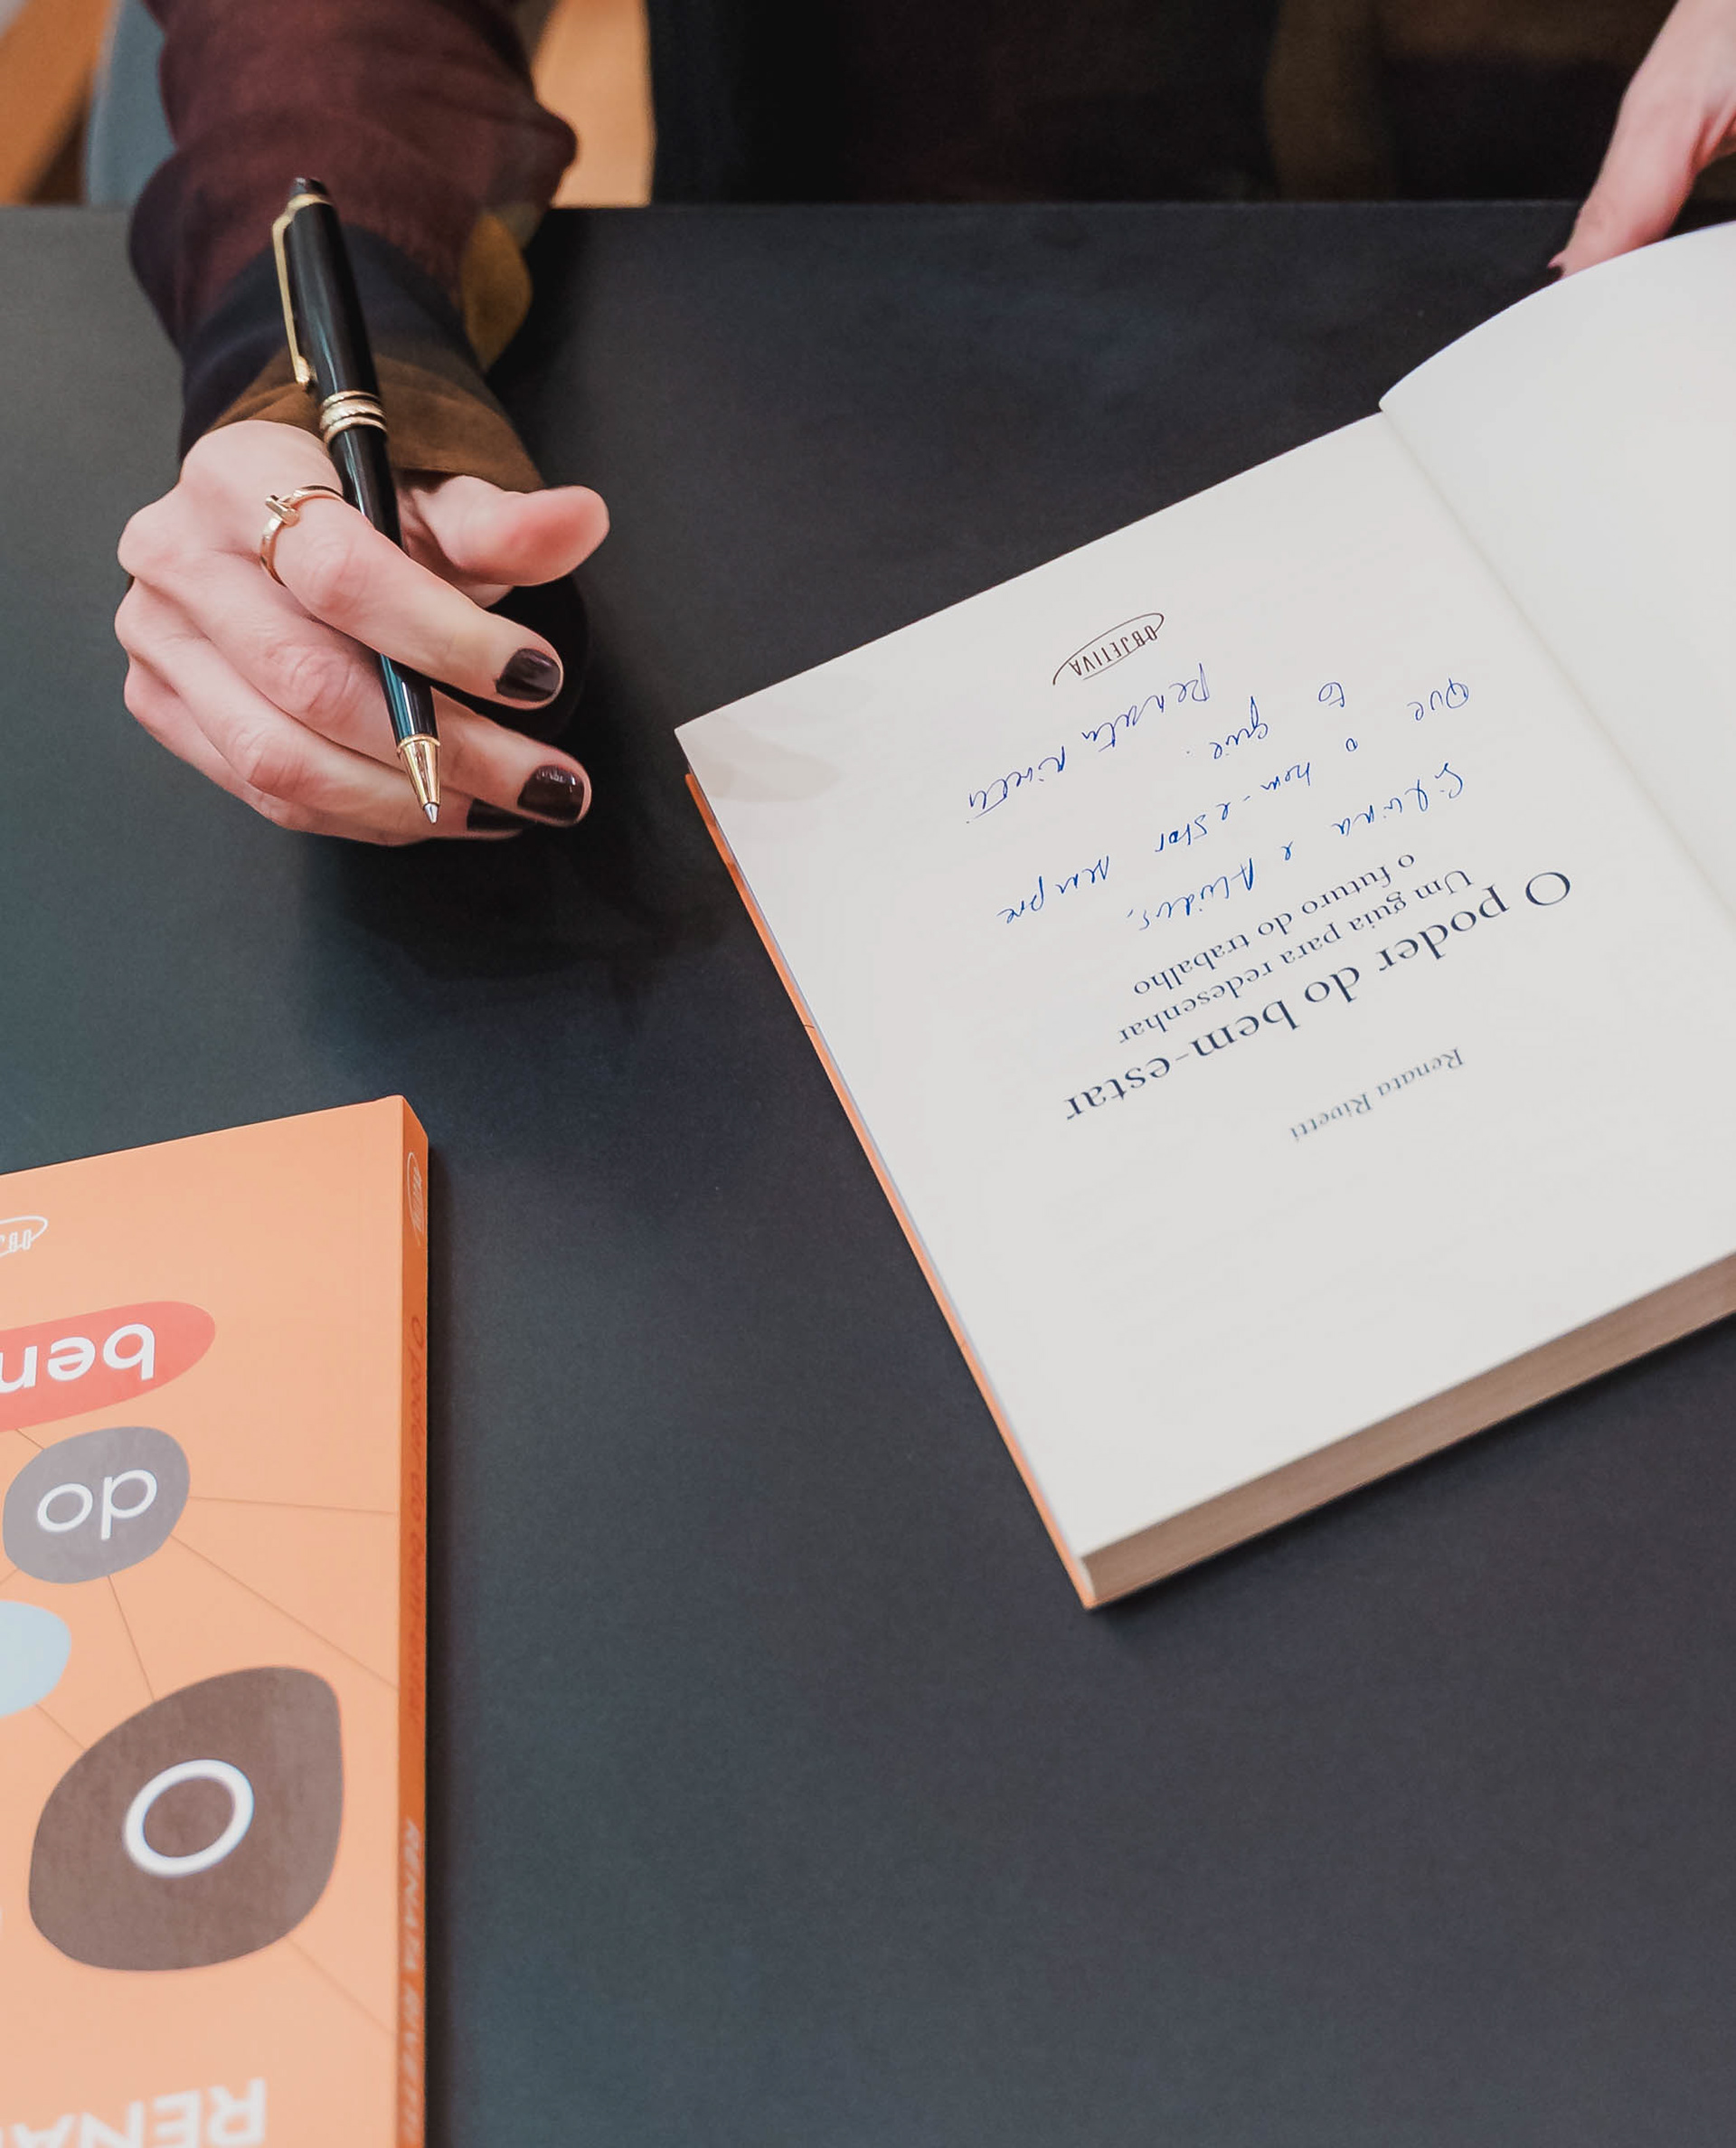 Renata Rivetti
O poder do bem-estar
Um guia para redesenhar
o futuro do trabalho
e
Que o bem-estar sempre
guie.
Renata Rivetti
OBJETIVA
RENA
O
do
ben
RENATA RIVETTI
O poder do bem-estar